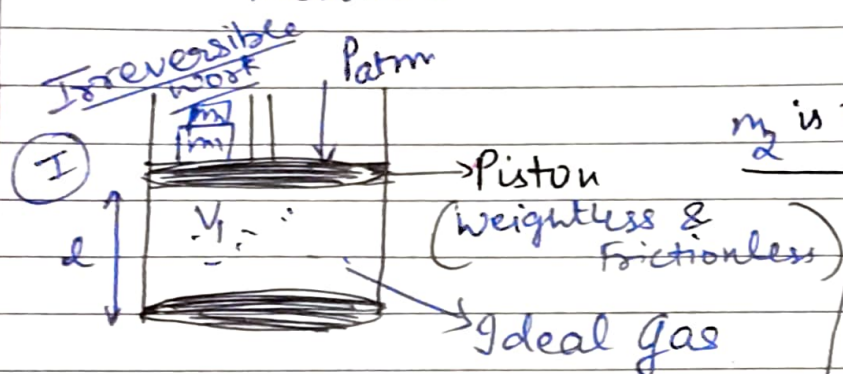 Irreversible
work
Patm
m2
m1
m2 is
I
Piston
(Weightless &
Frictionless)
V1
l
Ideal gas